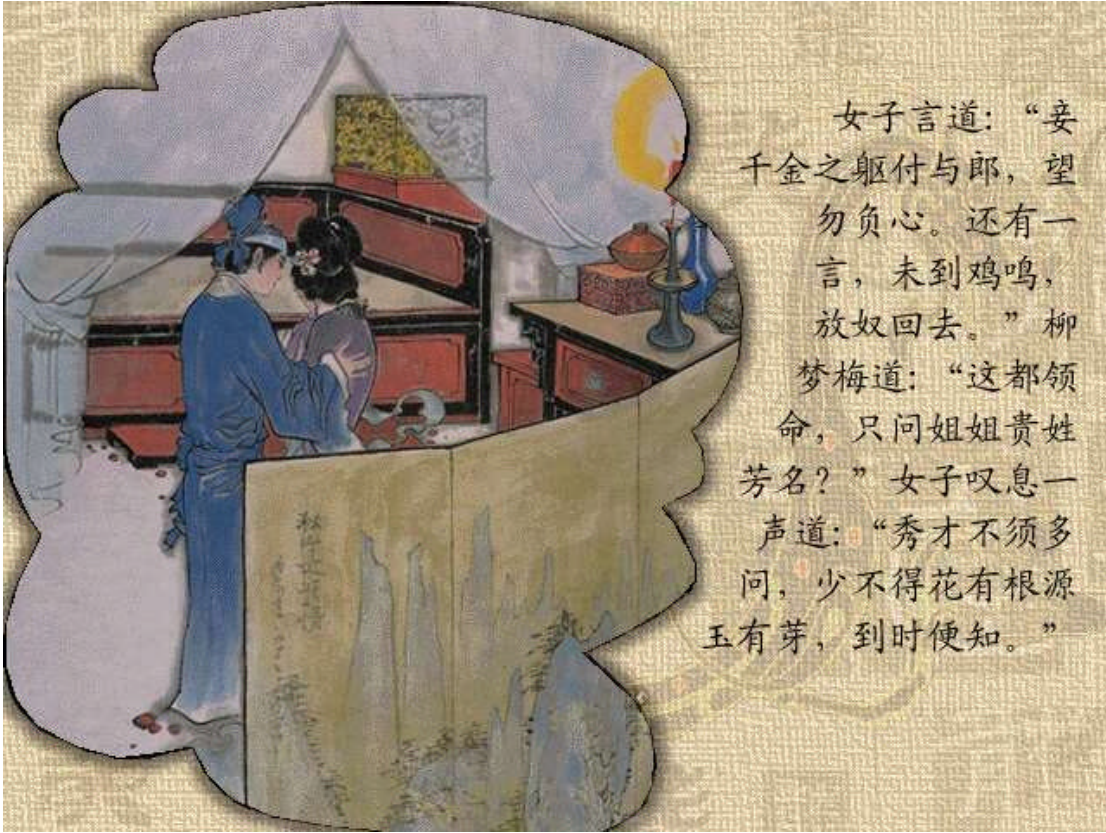 女子言道：“妾
千金之躯付与郎，望
勿负心。还有一
言，未到鸡鸣，
放奴回去。”柳
梦梅道：“这都领
命，只问姐姐贵姓
芳名？”女子叹息一
声道：“秀才不须多
问，少不得花有根源
玉有芽，到时便知。”